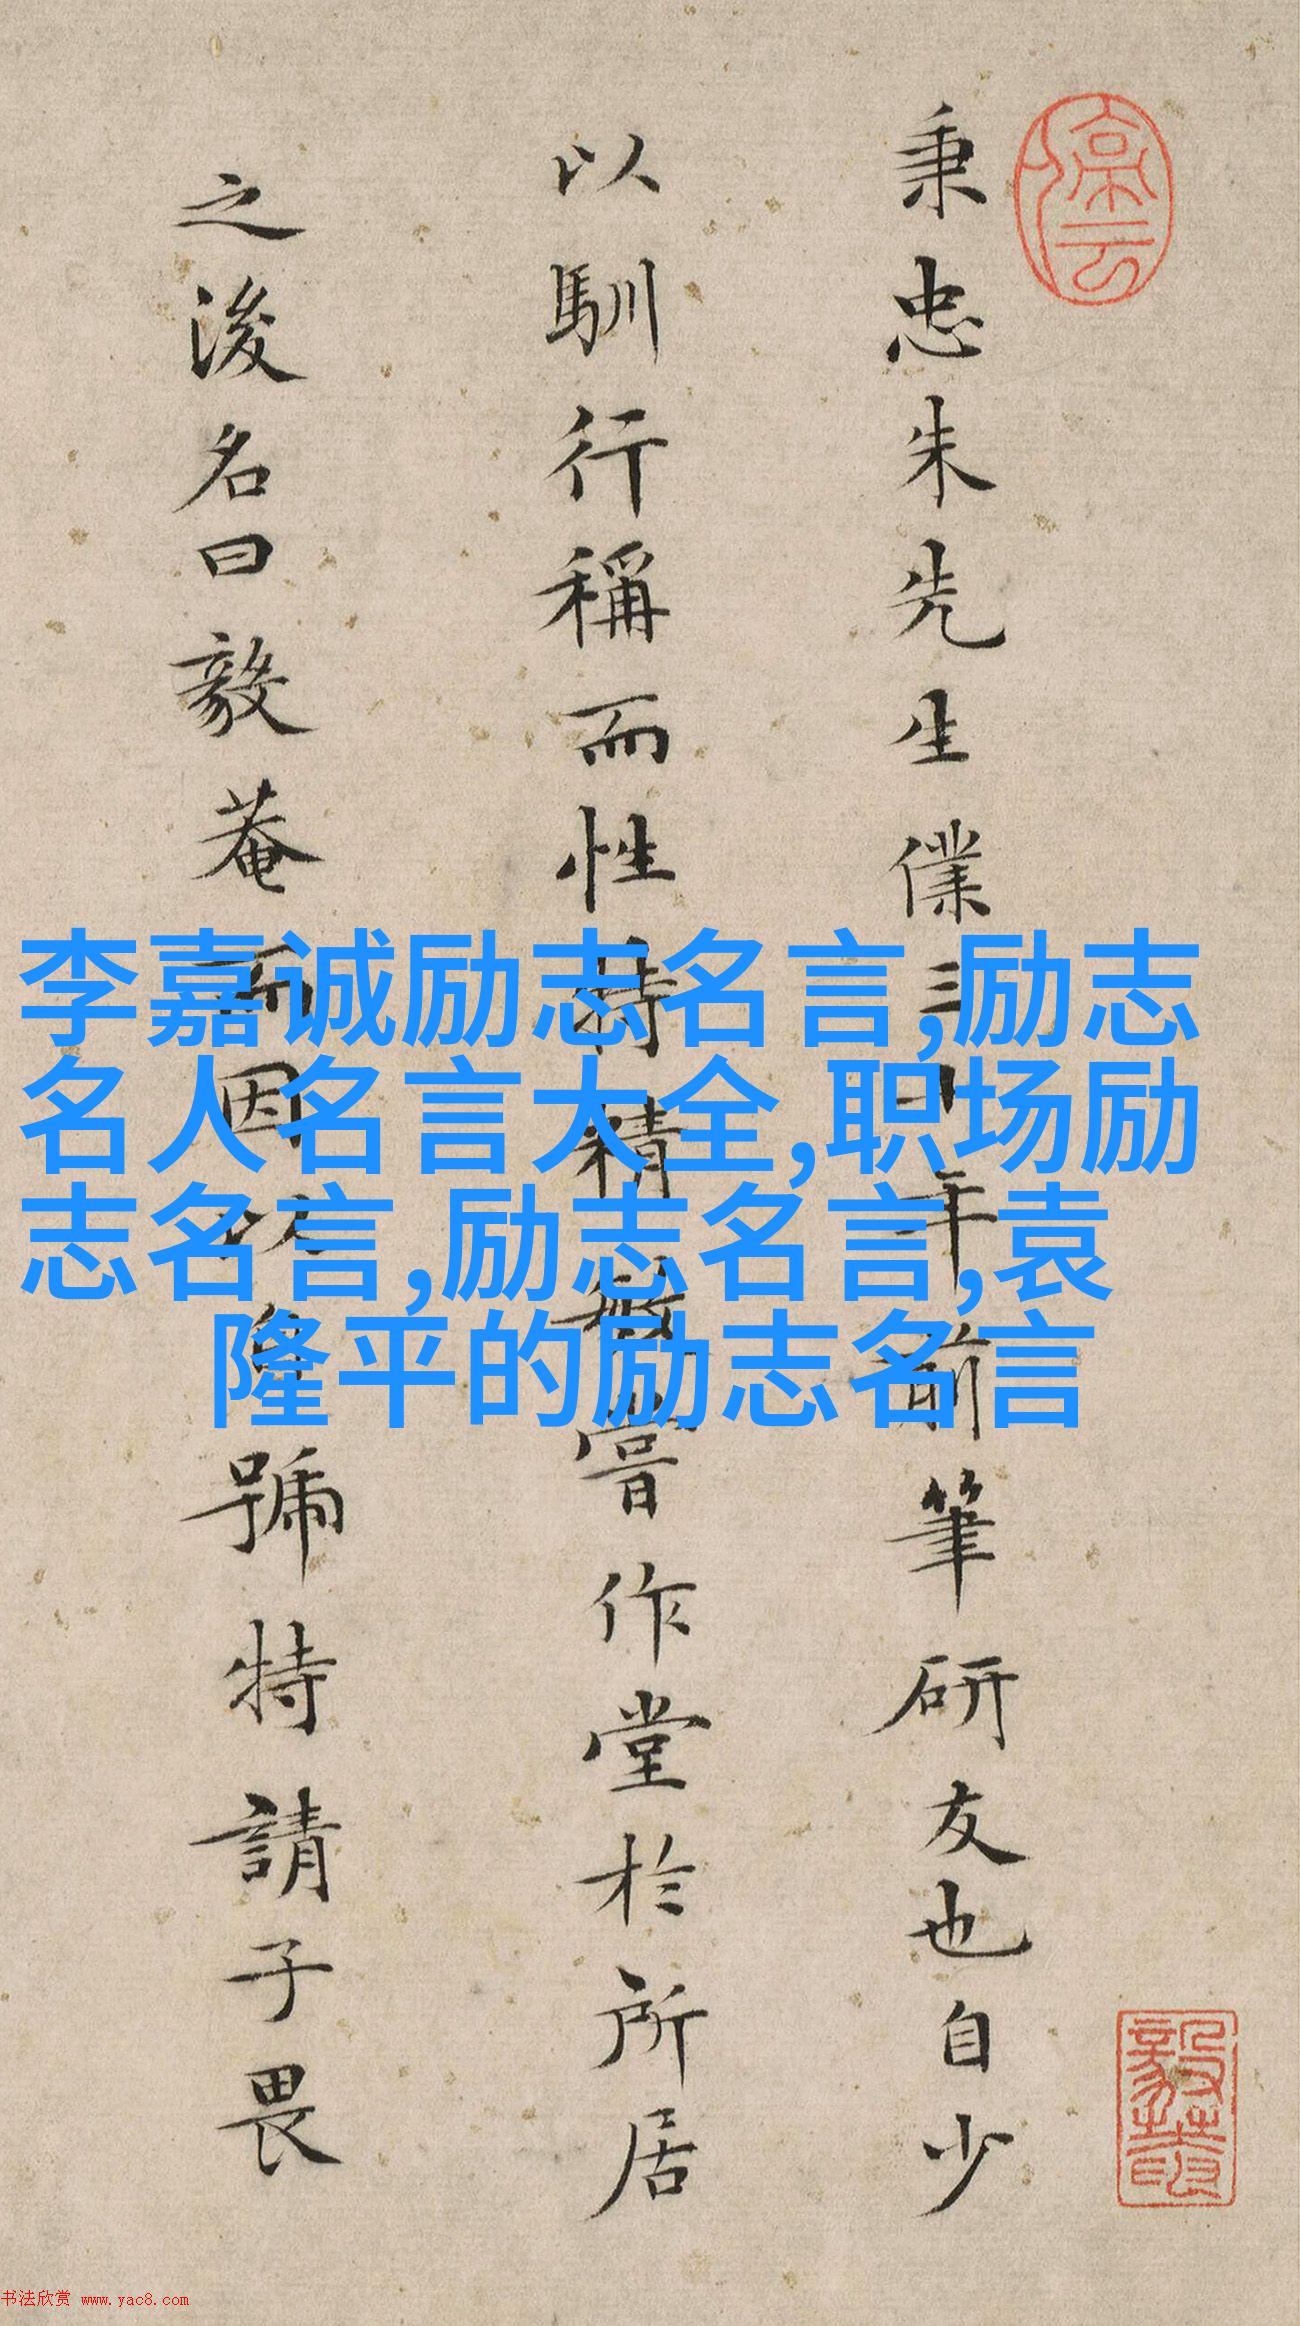 秉忠朱先生僕三十年前筆研友也自少
以馴行稱而性特精敏嘗作堂於所居
之後名曰毅菴而因以為號特請子畏
李嘉诚励志名言,励志
名人名言大全,职场励
志名言,励志名言,袁
隆平的励志名言
书法欣赏 www.yac8.com